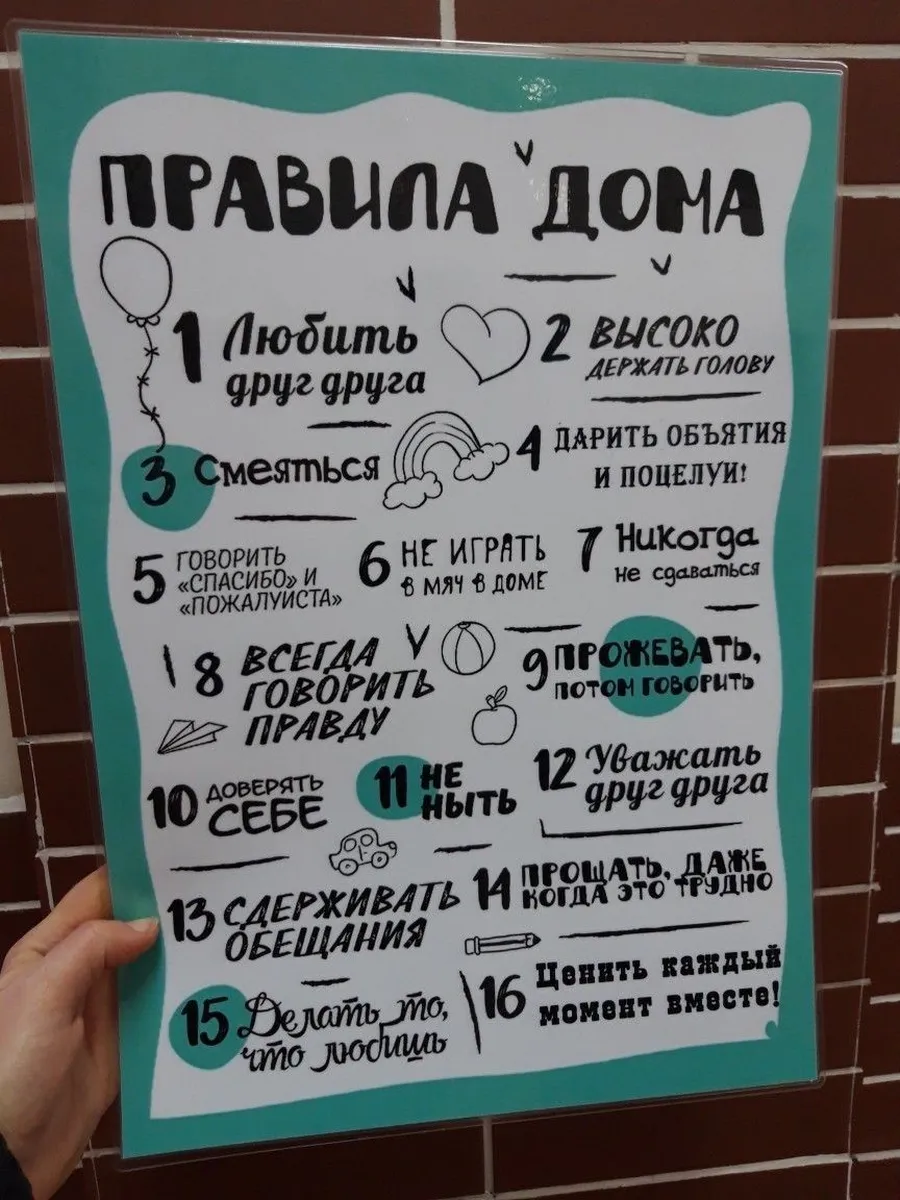 ПРАВИЛА ДОМА
1 Любить
друг друга
2 ВЫСОКО
ДЕРЖАТЬ ГОЛОВУ
3 Смеяться
4 ДАРИТЬ ОБЪЯТИЯ
И ПОЦЕЛУИ!
5 ГОВОРИТЬ
«СПАСИБО» И
«ПОЖАЛУИСТА»
6 НЕ ИГРАТЬ
В МЯЧ В ДОМЕ
7 Никогда
не сдаваться
8 ВСЕГДА
ГОВОРИТЬ
ПРАВДУ
9 ПРОЖЕВАТЬ,
ПОТОМ ГОВОРИТЬ
10 ДОВЕРЯТЬ
СЕБЕ
11 НЕ
НЫТЬ
12 Уважать
друг друга
13 СДЕРЖИВАТЬ
ОБЕЩАНИЯ
14 ПРОЩАТЬ, ДАЖЕ
КОГДА ЭТО ТРУДНО
15 Делать то,
что любишь
16 Ценить каждый
момент вместе!